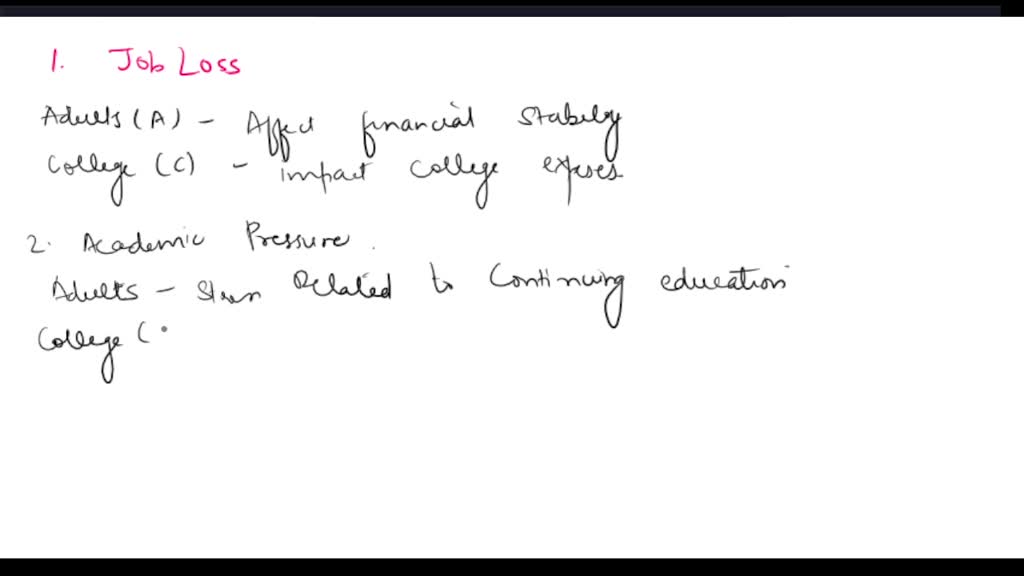 1. Job Loss
Adults (A) - Affect financial stability
College (C) - impact college expenses
2. Academic Pressure.
Adults - Stress Related to Continuing education
College (